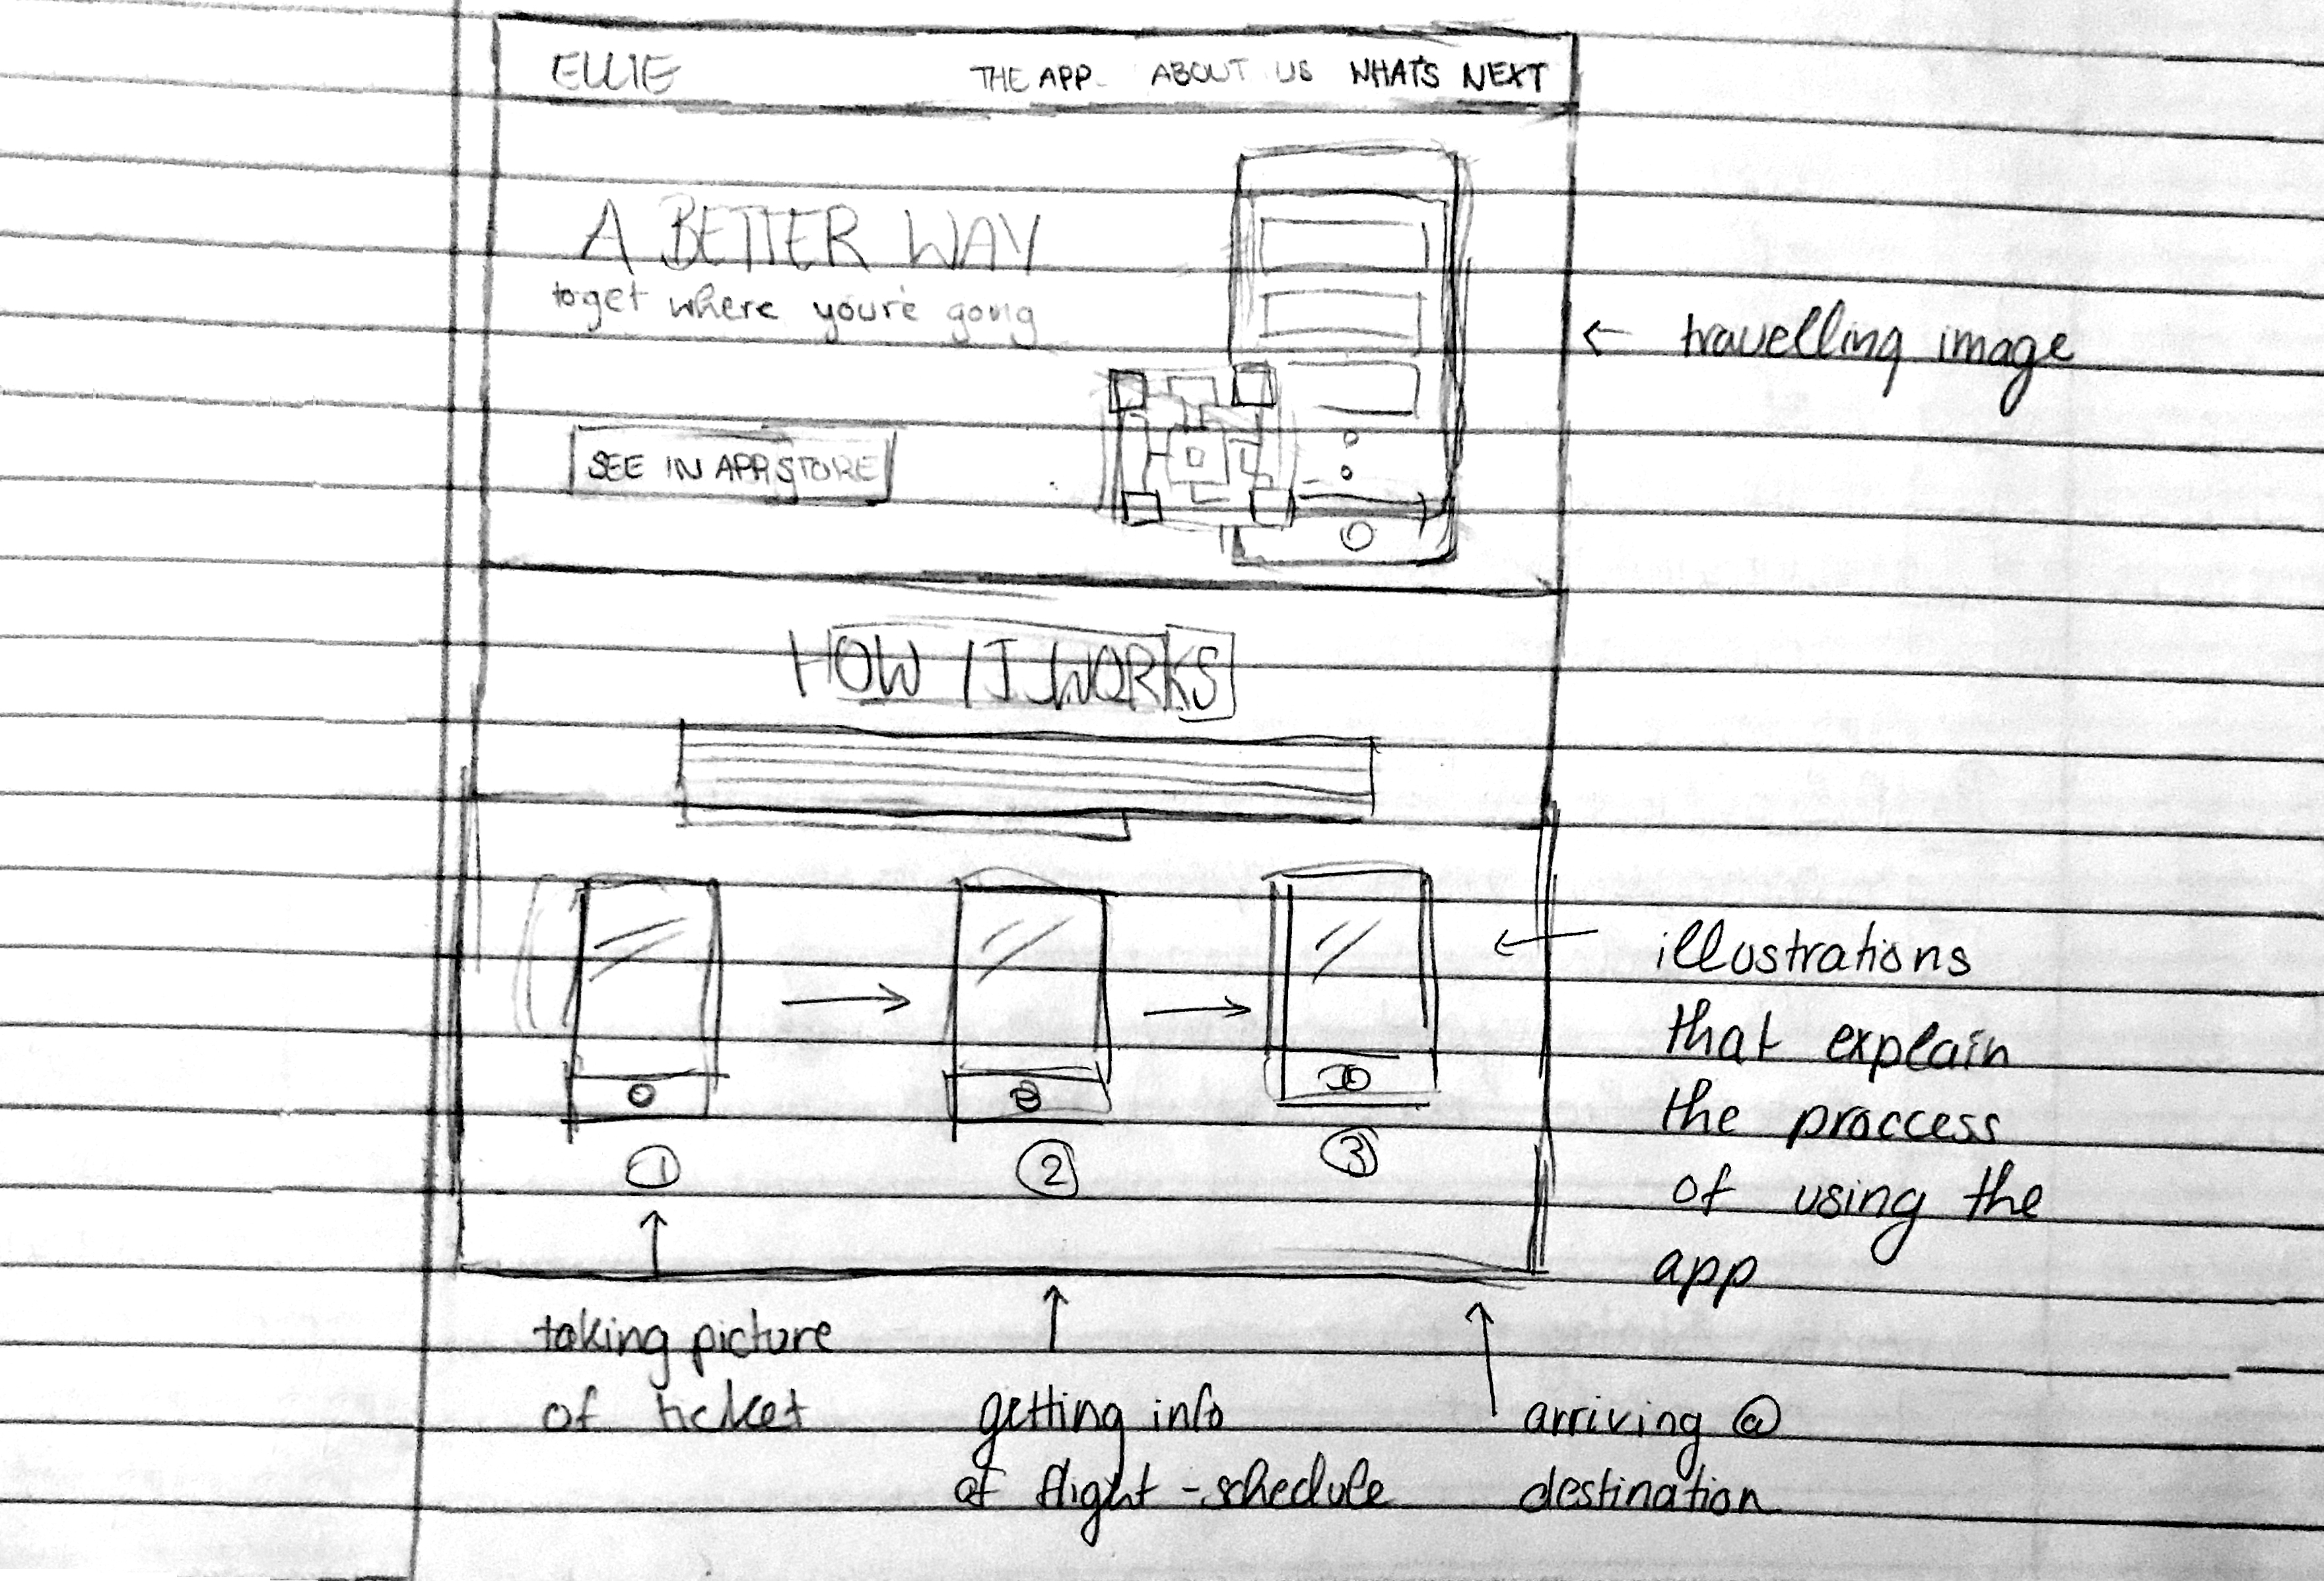 ELLIE
THE APP ABOUT US WHAT'S NEXT
A BETTER WAY
to get where you're going
SEE IN APP STORE
← travelling image
HOW IT WORKS
← illustrations
that explain
the proccess
of using the
app
1 2 3
taking picture
of ticket
getting info
of flight - schedule
arriving @
destination